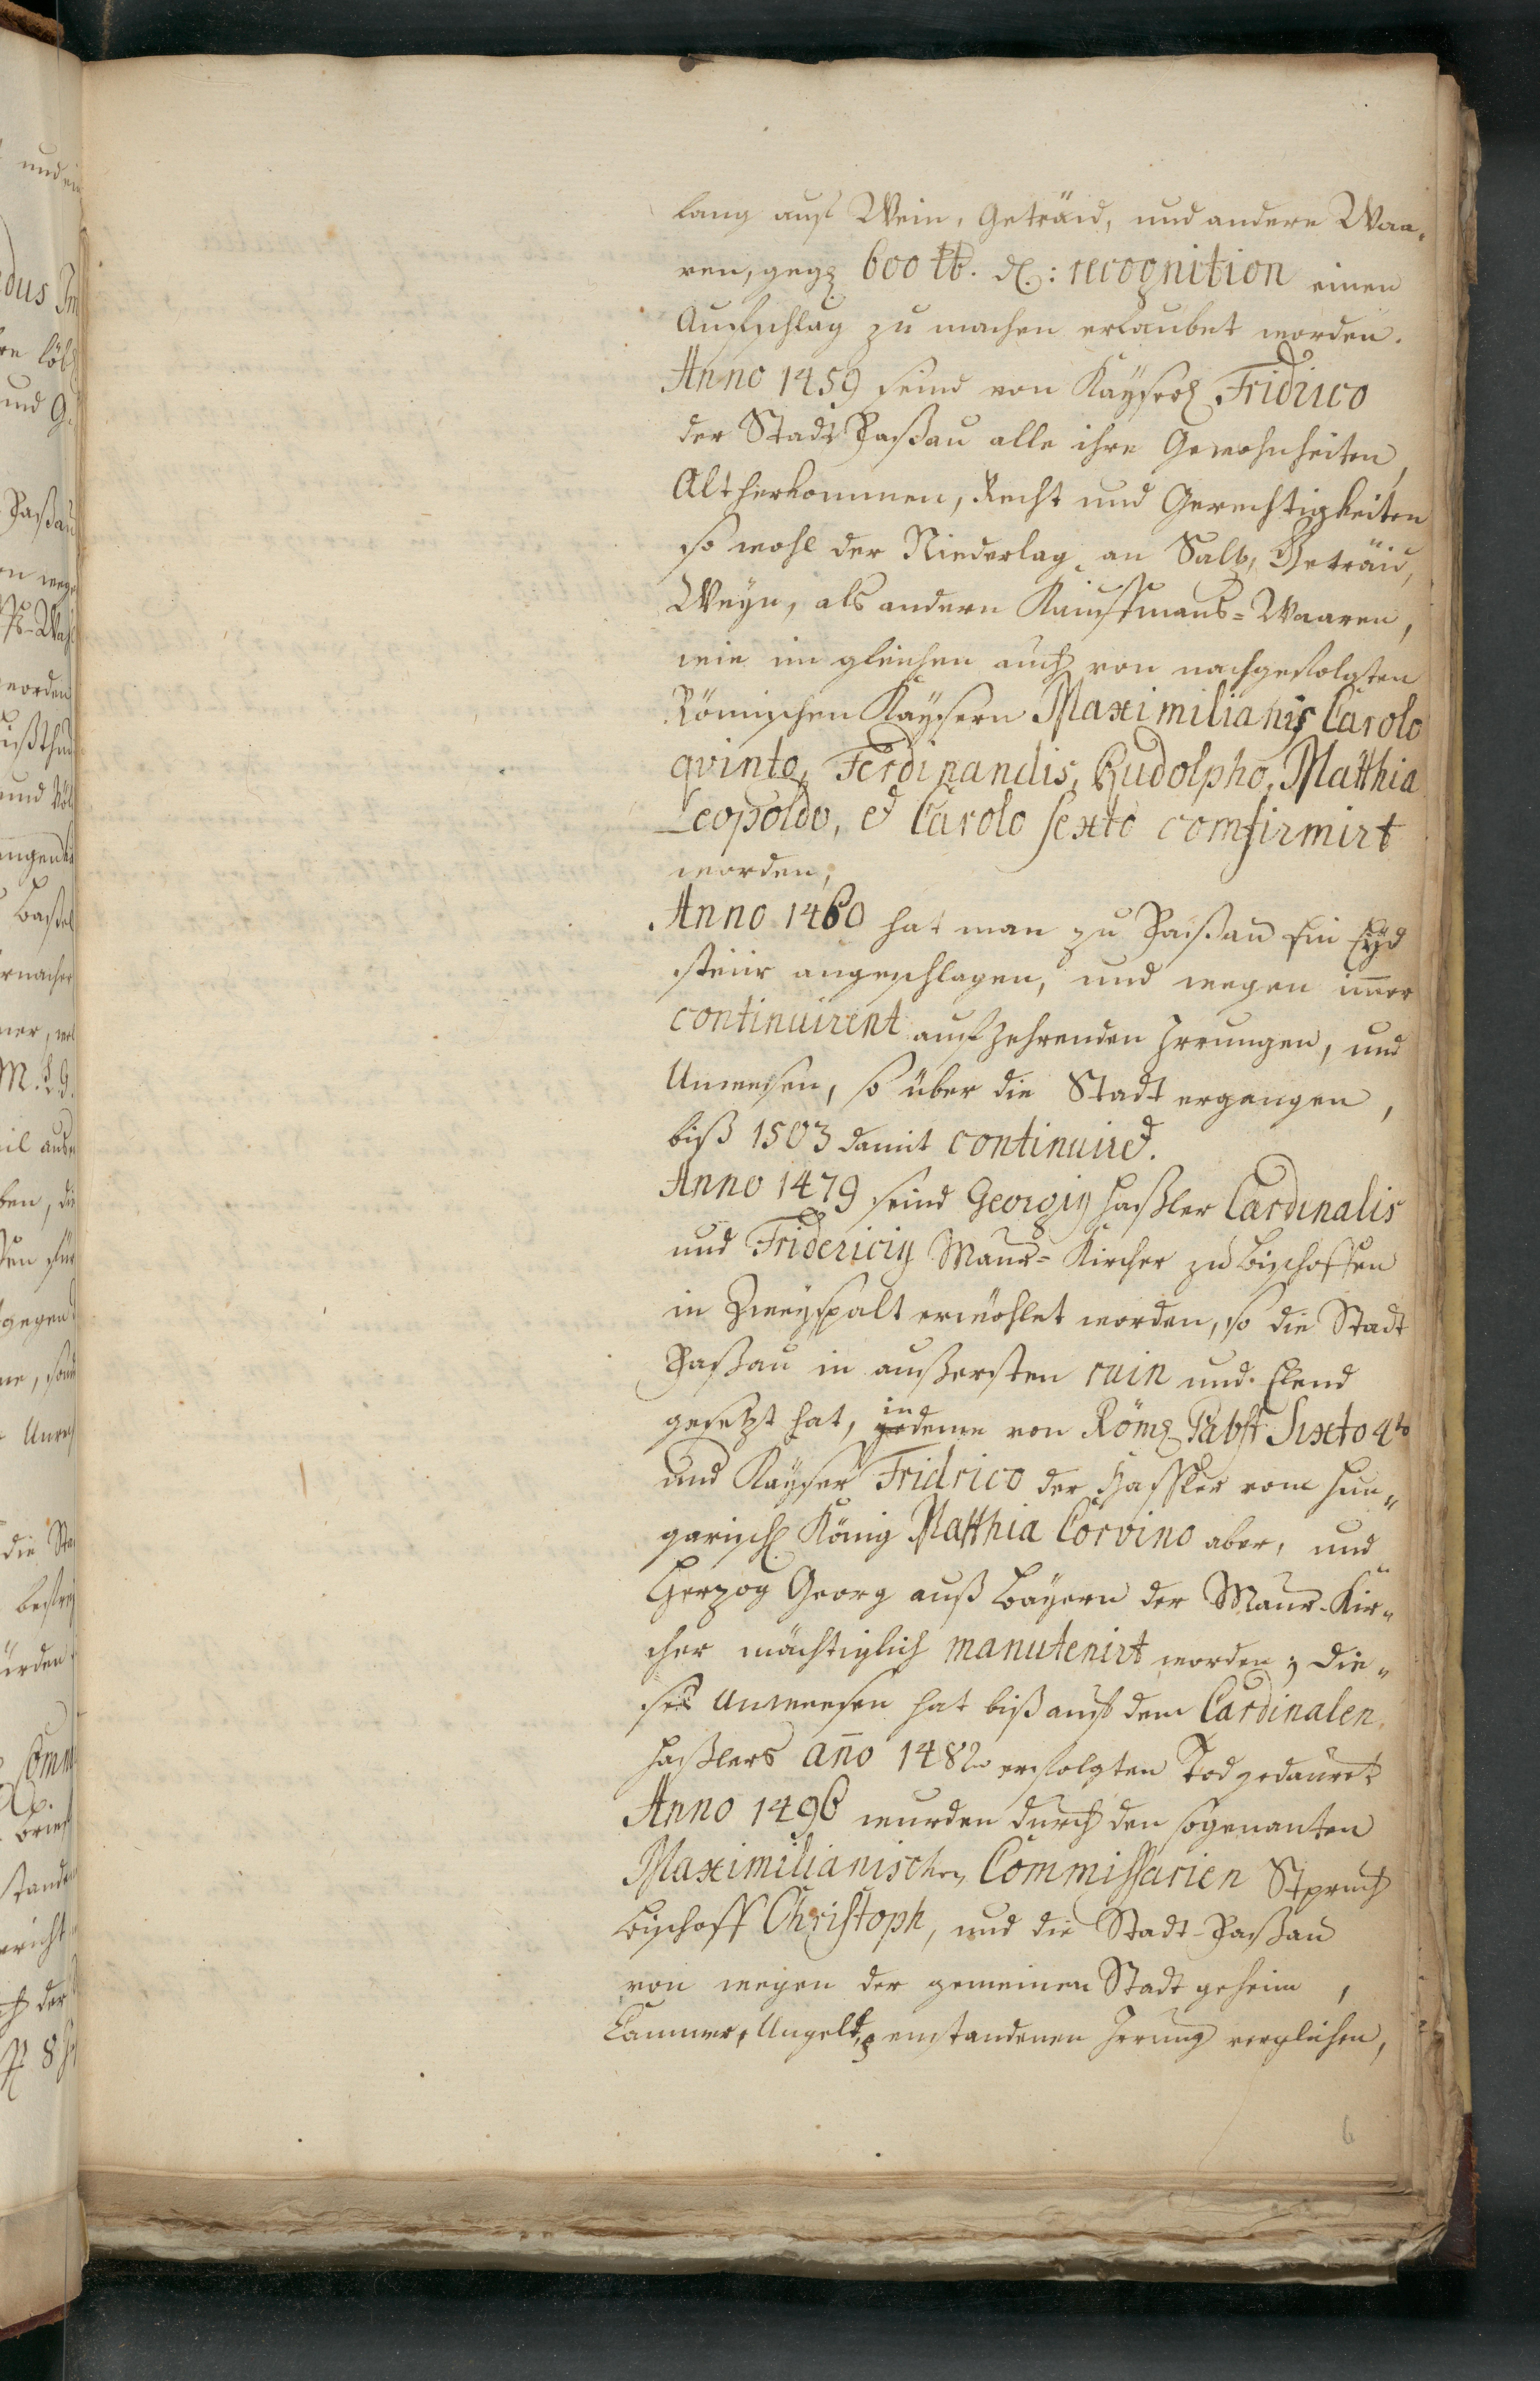 lang auf Wein, Geträid, und andere Waa-
ren, gegen 600 tb. d.: recognition einen
Auffschlag zu machen erlaubet worden.
Anno 1459 seind von Kayser Fridrico
der Stadt Paßau alle ihre Gewohnheiten,
Altherkommen, Recht und Gerechtigkeiten
so wohl der Niederlag an Saltz, Geträid,
Weyn, als andern Kauffmans=Waaren,
wie im gleichen auch von nachgefolgten
Römischen Kaysern Maximilianis Carolo
qvinto, Ferdinandis, Rudolpho, Matthia
Leopoldo, et Carolo sexto comfirmirt
worden,
Anno 1460 hat man zu Paßau ein Eyd
steür angeschlagen, und wegen im̄er
continuirent auf zehrenden Irrungen, und
Unwesen, so über die Stadt ergangen,
biß 1503 damit continuiret.
Anno 1479 seind Georgiy Haßler Cardinalis
und Fridericiy Maur=Kircher zu Bischoffen
in Zweyspalt erwöhlet worden, so die Stadt
Paßau in außersten ruin und Elend
gesetzt hat, indeme von Röm Pabst Sixto 4to
und Kayser Fridrico der Hassler vom Hun„
garisch König Matthia Corvino aber, und
Hertzog Georg auß Bayern der Maur-Kir„
cher mächtiglich manutenirt worden; die„
ses Unweesen hat biß auf dem Cardinalen
Haßlers año 1482 erfolgten Tod gedauret
Anno 1496 wurden durch den sogenanten
Maximilianischen Commissarien Spruch
Bischoff Christoph, und die Stadt-Paßau
von wegen der gemeinen Stadt geheim,
Cammer, Ungeld, entstandenen Irrung verglichen,
6